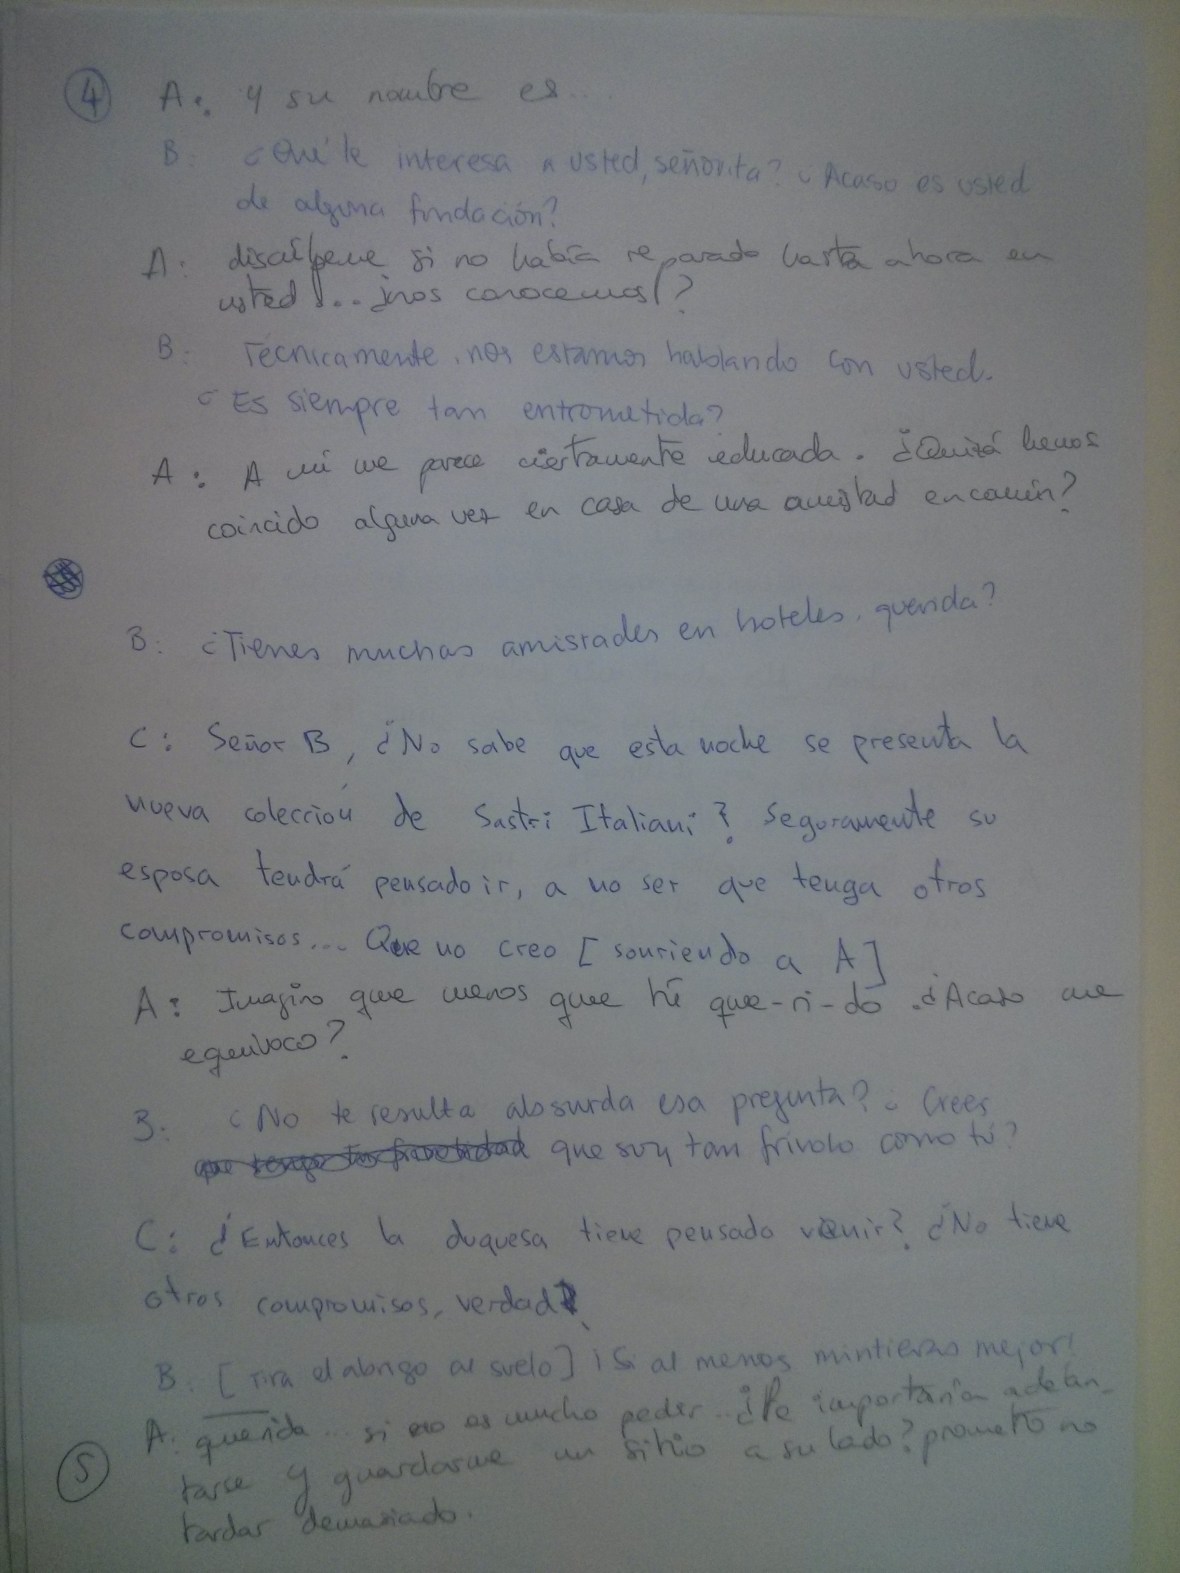 ④ A: Y su nombre es....
B: ¿Qué le interesa a usted, señorita? ¿Acaso es usted
de alguna fundación?
A: disculpeme si no había reparado hasta ahora en
usted!... ¿nos conocemos?
B: Técnicamente, nos estamos hablando con usted.
¿Es siempre tan entrometida?
A: A mi me parece ciertamente educada. ¿Quizá hemos
coincido alguna vez en casa de una amistad en común?
B: ¿Tienes muchas amistades en hoteles, querida?
C: Señor B, ¿No sabe que esta noche se presenta la
nueva colección de Sastri Italiani? Seguramente su
esposa tendrá pensado ir, a no ser que tenga otros
compromisos... Que no creo [sonriendo a A]
A: Imagino que menos que tú que-ri-do. ¿Acaso me
equivoco?
B: ¿No te resulta absurda esa pregunta? ¿Crees
que soy tan frívolo como tú?
C: ¿Entonces la duquesa tiene pensado venir? ¿No tiene
otros compromisos, verdad?
B: [Tira el abrigo al suelo] ¡Si al menos mintieras mejor!
A: querida... si no es mucho pedir... ¿Le importaría adelan-
⑤ tarse y guardarme un sitio a su lado? prometo no
tardar demasiado.